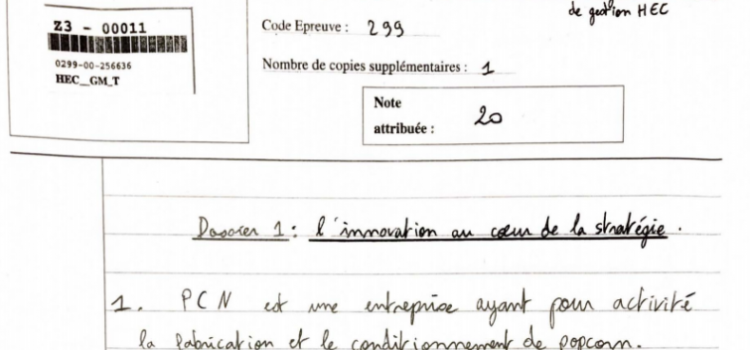 de gestion HEC
Z3 - 00011
Code Epreuve : 299
0299-00-256636
HEC_GM_T
Nombre de copies supplémentaires : 1
Note
attribuée : 20
Dossier 1 : l'innovation au cœur de la stratégie.
1. PCN est une entreprise ayant pour activité
la fabrication et le conditionnement de popcorn.